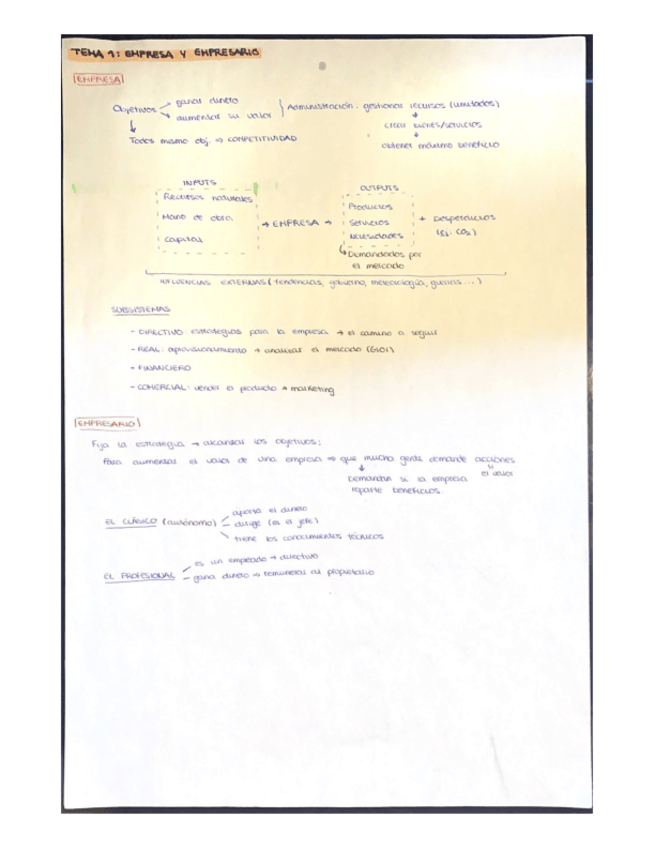 TEMA 1: EMPRESA Y EMPRESARIO
EMPRESA
Objetivos → ganar dinero
→ aumentar su valor
Administración: gestionar recursos (limitados)
↓
crear bienes/servicios
↓
obtener máximo beneficio
↓
Todos mismo obj. ⇒ COMPETITIVIDAD
INPUTS
Recursos naturales
Mano de obra
Capital
→ EMPRESA →
OUTPUTS
Productos
Servicios
Necesidades
+ Desperdicios
(Ej: CO₂)
↳ Demandados por
el mercado
INFLUENCIAS EXTERNAS (tendencias, gobierno, meteorología, guerras...)
SUBSISTEMAS
- DIRECTIVO estrategias para la empresa → el camino a seguir
- REAL: aprovisionamiento → analizar el mercado (GIOI)
- FINANCIERO
- COMERCIAL: vender el producto → marketing
EMPRESARIO
Fija la estrategia → alcanzar los objetivos:
Para aumentar el valor de una empresa ⇒ que mucha gente demande acciones
↓
el valor
Demandan si la empresa
reparte beneficios.
EL CLÁSICO (autónomo) - aporta el dinero
- dirige (es el jefe)
- tiene los conocimientos técnicos
EL PROFESIONAL - es un empleado → directivo
- gana dinero → remunerar al propietario